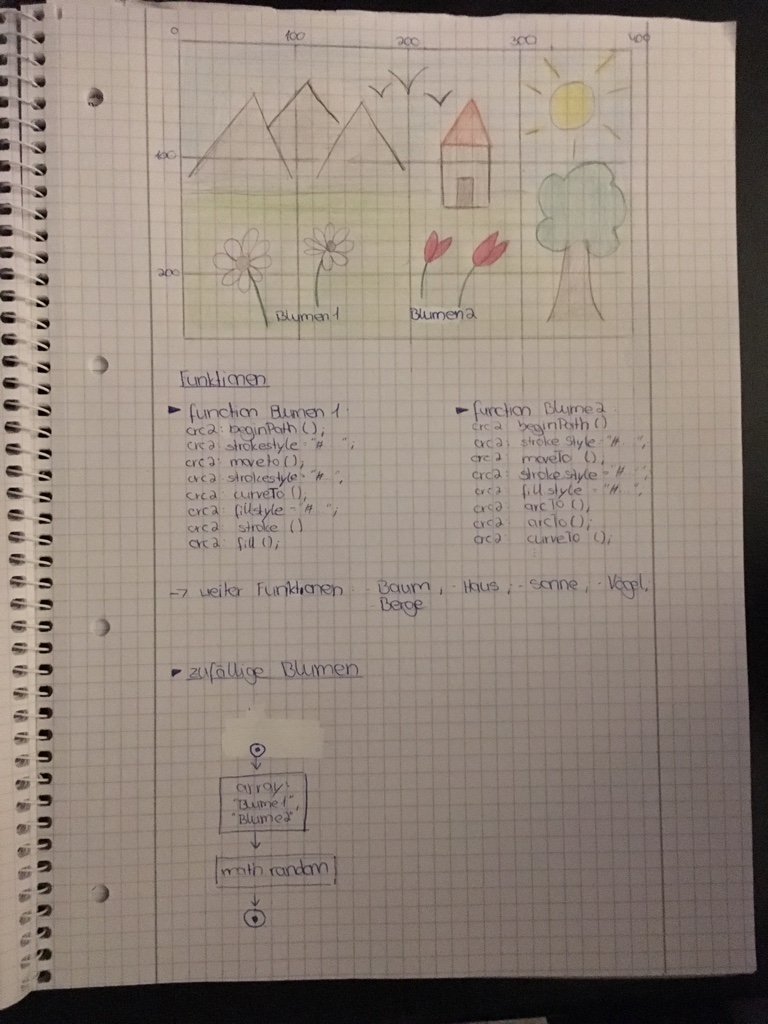 0 100 200 300 400
100
200
Blumen1 Blumen2
Funktionen
► function Blumen 1:
crc2: beginPath ();
crc2: strokestyle = "# ";
crc2: moveTo ();
crc2: strokestyle = "# ";
crc2: curveTo ();
crc2: fillstyle = "# ";
crc2: stroke ()
crc2: fill ();
► function Blume2
crc2 beginPath ()
crc2: stroke Style = "# ";
crc2: moveTo ();
crc2: strokestyle = # ";
crc2 fillstyle = "# ";
crc2 arcTo ();
crc2 arcTo ();
crc2 curveTo ();
-> weiter Funktionen - Baum, - Haus, - Sonne, - Vögel,
- Berge
► zufällige Blumen
array:
"Blume1",
"Blume2"
math random